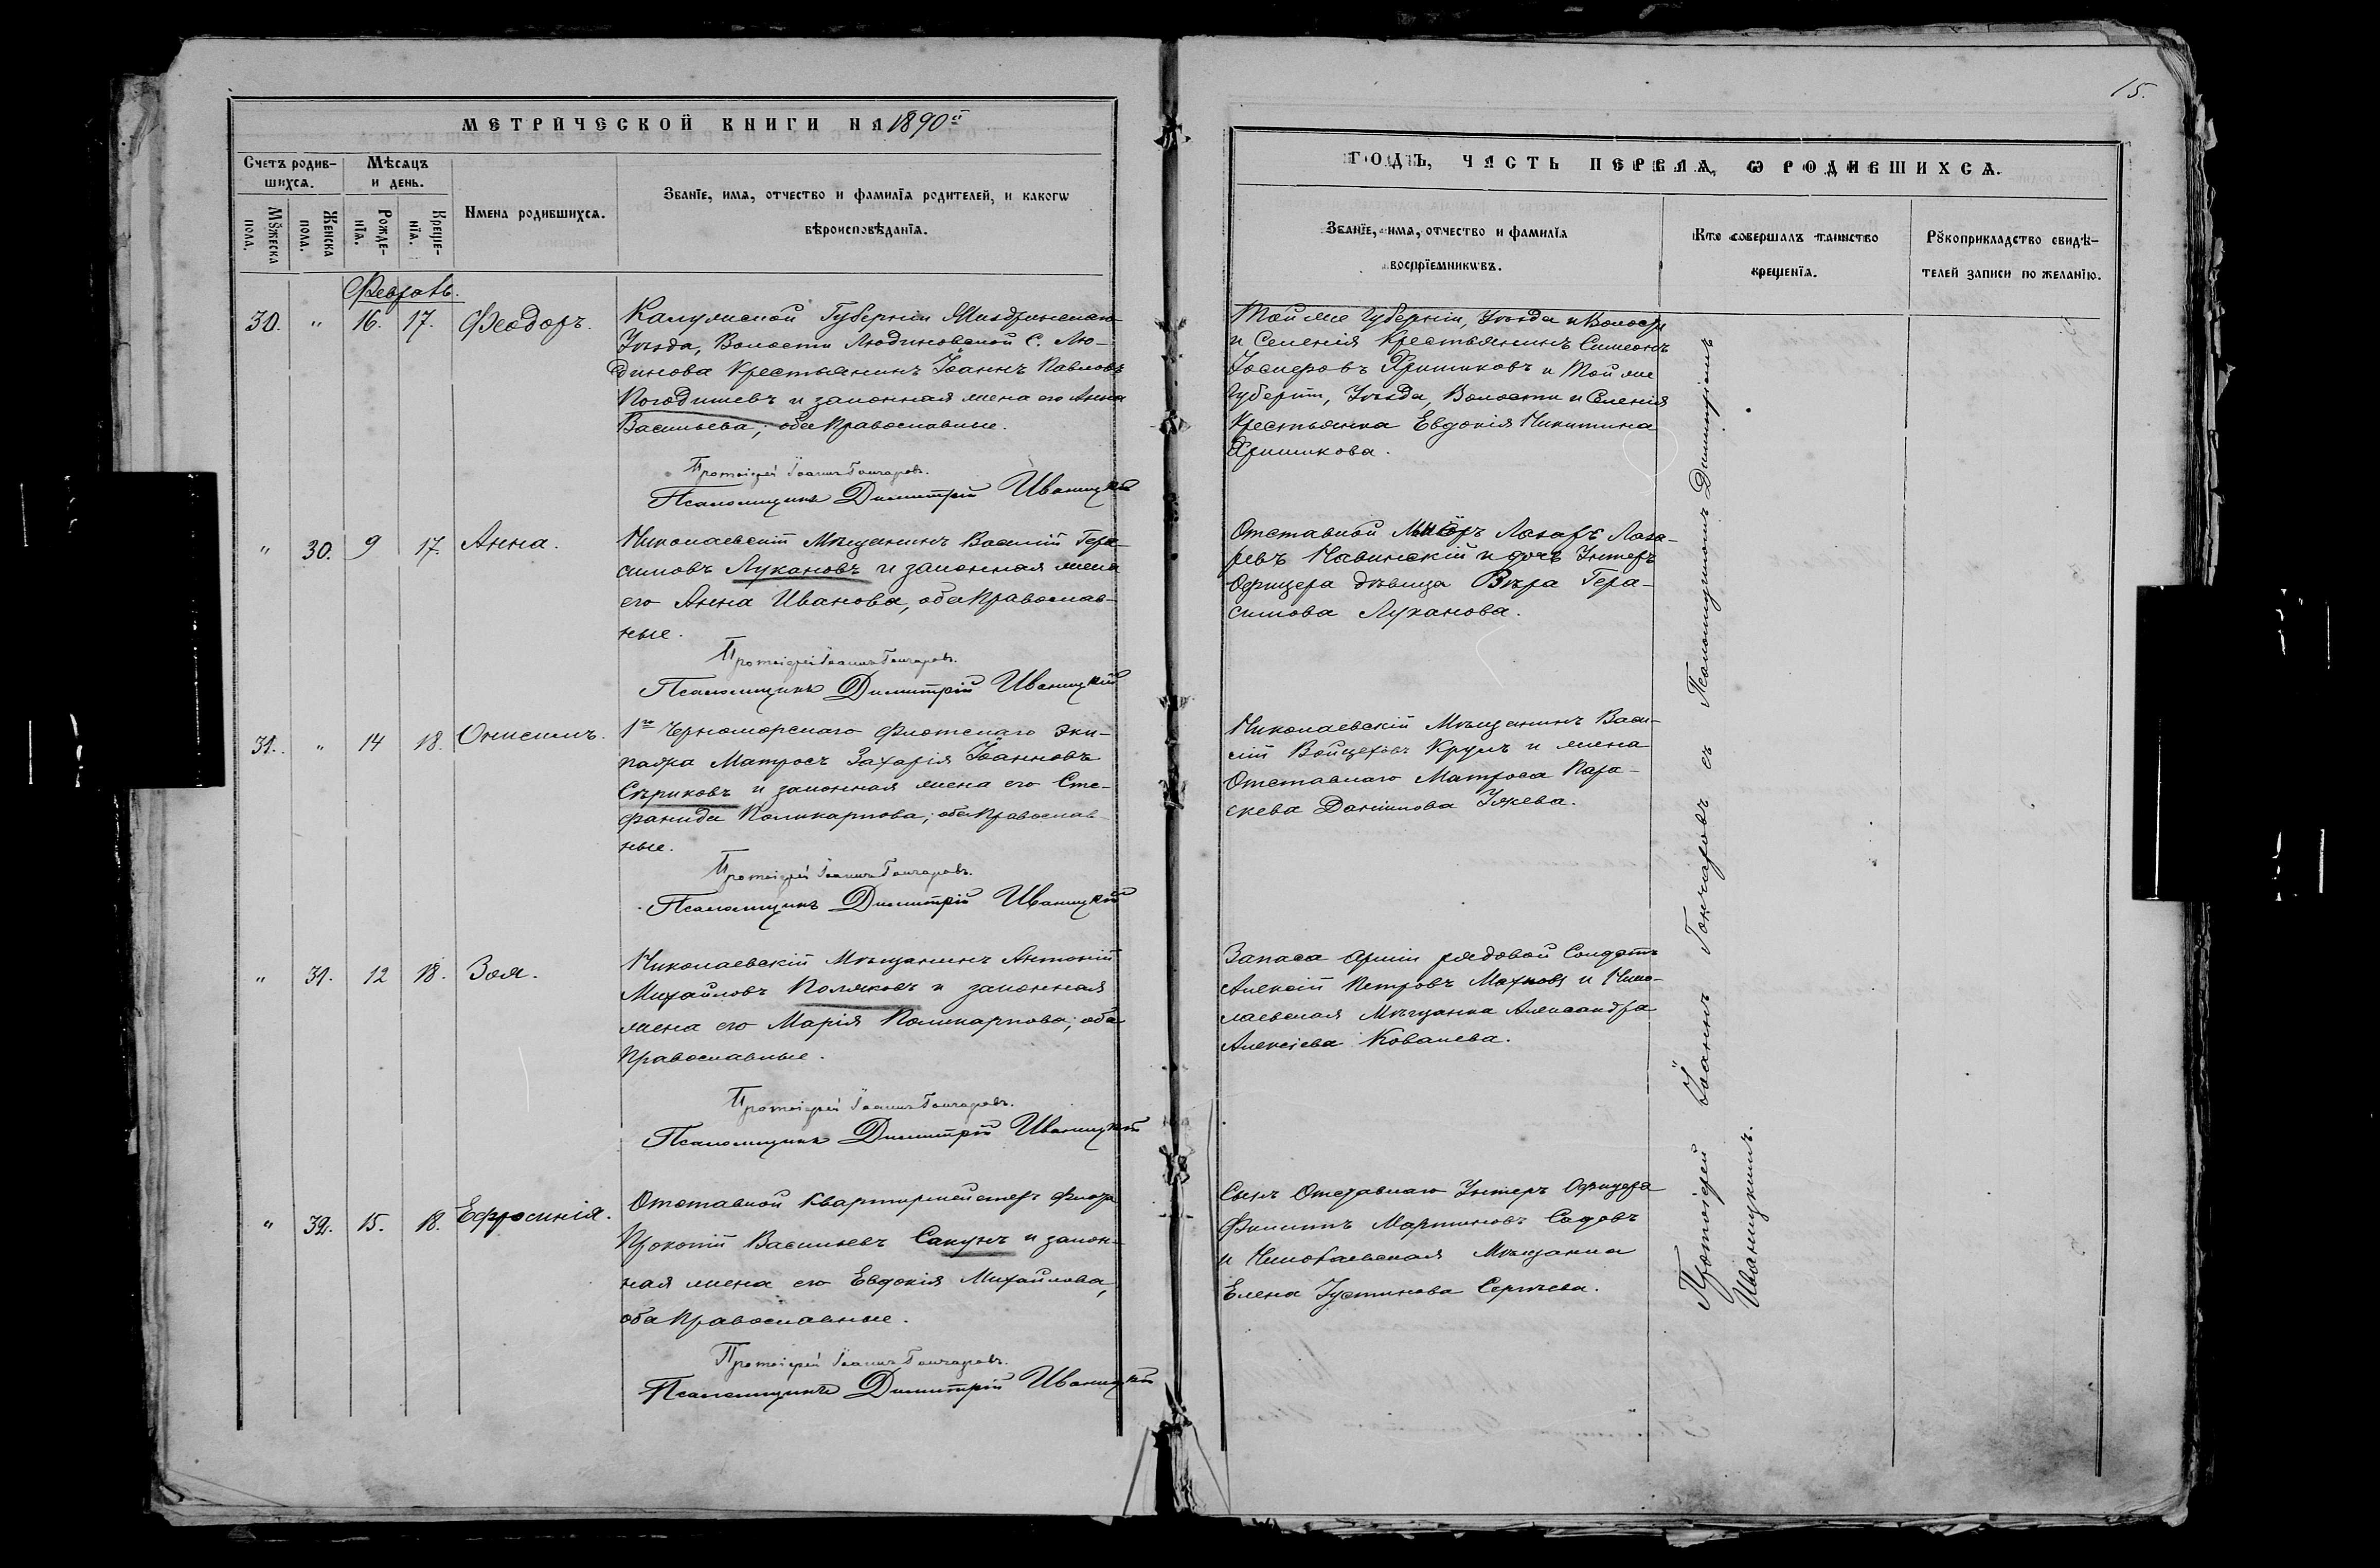 15.
МЕТРИЧЕСКОЙ КНИГИ НА 1890й
Счетъ родив-
шихся.
Мѣсяцъ
и день.
Имена родившихся.
Званіе, имя, отчество и фамилія родителей, и какогѡ
вѣроисповѣданія.
Мꙋжеска
пола.
Женска
пола.
Рожде-
нія.
Креще-
нія.
Февраль.
30. " 16. 17. Феодоръ.
Калужской Губерніи Жиздринскаго
Уѣзда, Волости Людиновской С. Лю-
динова Крестьянинъ Іоаннъ Павловъ
Погодишевъ и законная жена его Анна
Васильева; оба Православные.
Протоіерей Іоаннъ Гончаровъ.
Псаломщикъ Димитрій Иваницкій
" 30. 9 17. Анна.
Николаевскій Мѣщанинъ Василій Гера-
симовъ Лукановъ и законная жена
его Анна Иванова, оба Православ-
ные.
Протоіерей Іоаннъ Гончаровъ.
Псаломщикъ Димитрій Иваницкій
31. " 14 18. Онисимъ.
1го Черноморскаго Флотскаго Эки-
пажа Матросъ Захарія Іоанновъ
Сѣриковъ и законная жена его Сте-
фанида Поликарпова; оба Православ-
ные.
Протоіерей Іоаннъ Гончаровъ.
Псаломщикъ Димитрій Иваницкій
" 31. 12 18. Зоя.
Николаевскій Мѣщанинъ Антоній
Михайловъ Поляковъ и законная
жена его Марія Поликарпова; оба
Православные.
Протоіерей Іоаннъ Гончаровъ.
Псаломщикъ Димитрій Иваницкій
" 32. 15. 18. Ефросинія.
Отставной Квартирмейстеръ Флота
Прокопій Васильевъ Сакунъ и закон-
ная жена его Евдокія Михайлова,
оба Православные.
Протоіерей Іоаннъ Гончаровъ.
Псаломщикъ Димитрій Иваницкій
ГОДЪ, ЧАСТЬ ПЕРВАЯ, Ѡ РОДИВШИХСЯ.
Званіе, имя, отчество и фамилія
воспріемникѡвъ.
Кто совершалъ таинство
крещенія.
Рꙋкоприкладство свидѣ-
телей записи по желанію.
Той же Губерніи, Уѣзда и Волости
и Селенія Крестьянинъ Симеонъ
и Той же
Губерніи, Уѣзда, Волости и Селенія
Крестьянка Евдокія Никитина
Отставной Лазарь Лаза-
ревъ Навинскій и дочь Унтеръ
Офицера дѣвица Вѣра Гера-
симова Луканова.
Николаевскій Мѣщанинъ Васи-
лій Войцеховъ Круль и жена
Отставнаго Матроса Пара-
скева Даніилова Ужева.
Запаса Арміи рядовой Солдатъ
Алексій Петровъ и Нико-
лаевская Мѣщанка Александра
Алексіева Ковалева.
Сынъ Отставнаго Унтеръ Офицера
Филиппъ Мартиновъ Садовъ
и Николаевская Мѣщанка
Елена Іустинова Сергѣева.
Протоіерей Іоаннъ Гончаровъ съ Псаломщикомъ Димитріемъ
Иваницкимъ.